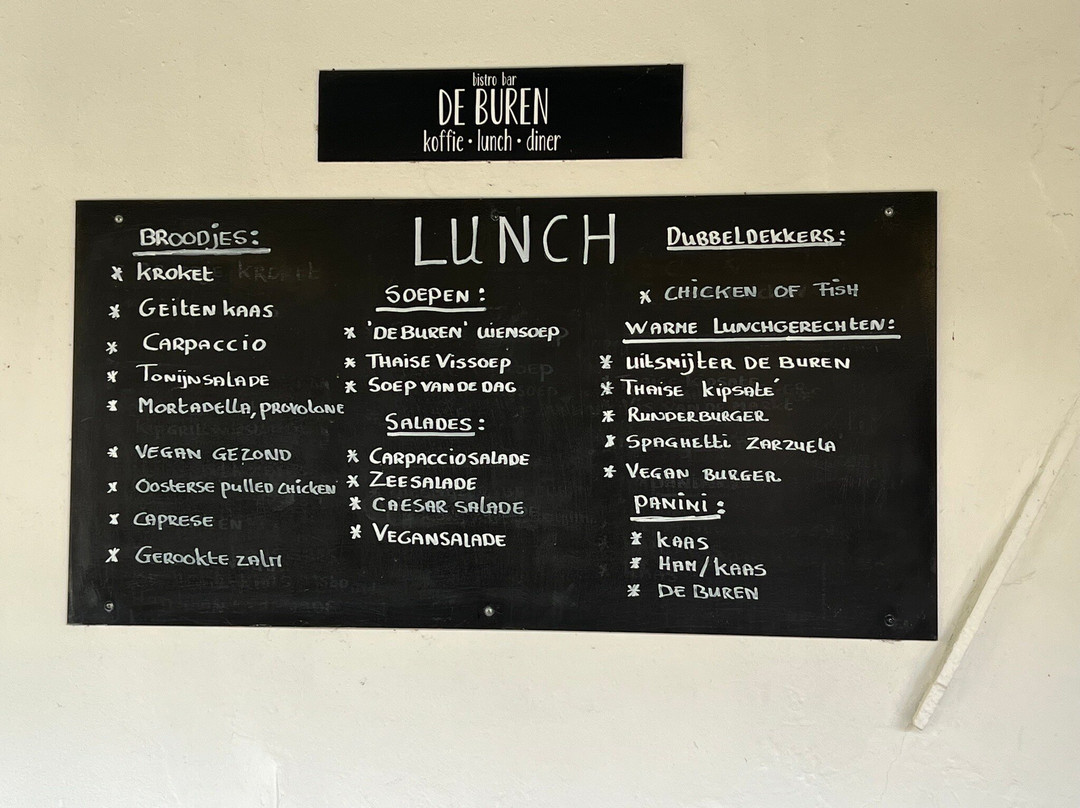 bistro bar
DE BUREN
koffie • lunch • diner
LUNCH
BROODJES:
* KROKET
* GEITEN KAAS
* CARPACCIO
* TONIJNSALADE
* MORTADELLA, PROVOLONE
* VEGAN GEZOND
* OOSTERSE PULLED CHICKEN
* CAPRESE
* GEROOKTE ZALM
SOEPEN:
* 'DE BUREN' UIENSOEP
* THAISE VISSOEP
* SOEP VAN DE DAG
SALADES:
* CARPACCIOSALADE
* ZEESALADE
* CAESAR SALADE
* VEGANSALADE
DUBBELDEKKERS:
* CHICKEN OF FISH
WARME LUNCHGERECHTEN:
* UITSMIJTER DE BUREN
* THAISE KIPSATÉ
* RUNDERBURGER
* SPAGHETTI ZARZUELA
* VEGAN BURGER
PANINI:
* KAAS
* HAM/KAAS
* DE BUREN